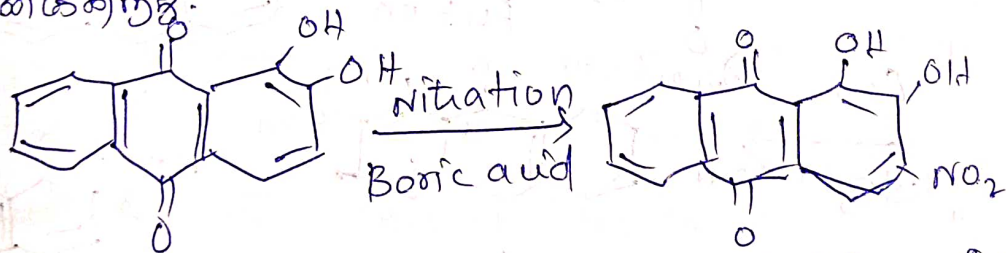 O
OH
OH
Nitration
Boric acid
O
O
OH
OH
NO₂
O